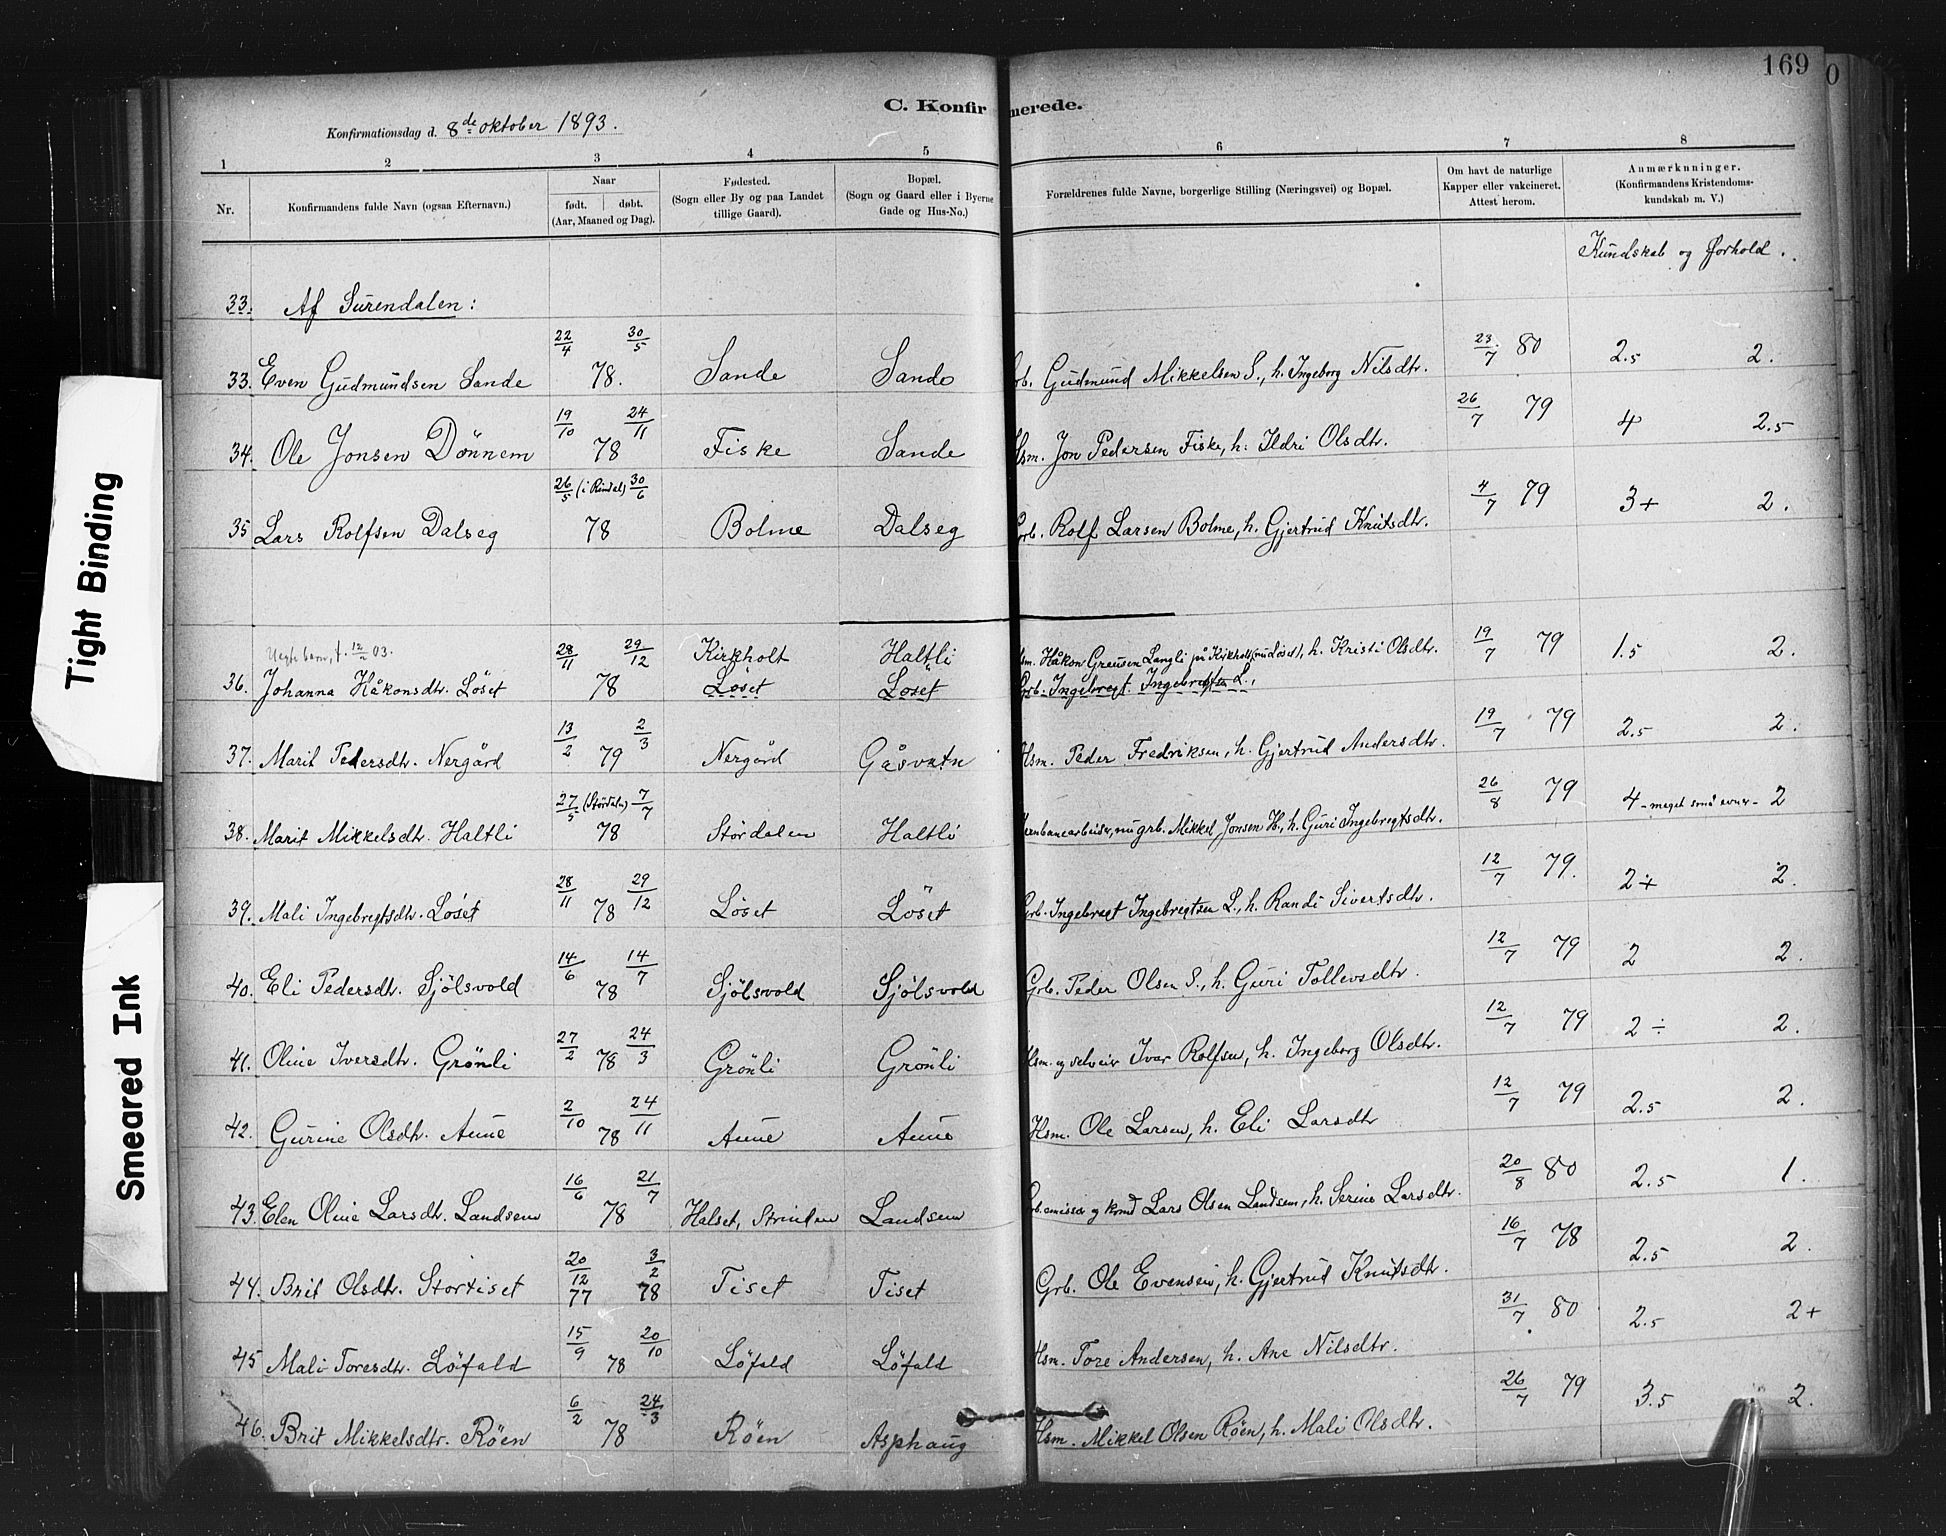 169
0
C. Konfirmerede.
Konfirmationsdag d. 8de oktober 1893.
1 2 3 4 5 6 7 8
Nr. Konfirmandens fulde Navn (ogsaa Efternavn.) Naar født. døbt. (Aar, Maaned og Dag). Fødested. (Sogn eller By og paa Landet tillige Gaard). Bopæl. (Sogn og Gaard eller i Byerne Gade og Hus-No.) Forældrenes fulde Navne, borgerlige Stilling (Næringsvei) og Bopæl. Om havt de naturlige Kapper eller vakcineret. Attest herom. Anmærkninger. (Konfirmandens Kristendomskundskab m. V.)
Kundskab og Forhold.
33. Af Surendalen:
33. Even Gudmundsen Sande 22/4 30/5 78. Sande Sande Grb. Gudmund Mikkelsen S., h. Ingeborg Nilsdtr. 23/7 80 2.5 2.
34. Ole Jonsen Dønnem 19/10 24/11 78 Fiske Sande Hsm. Jon Pedersen Fiske, h. Ildri Olsdtr. 26/7 79 4 2.5
35 Lars Rolfsen Dalseg 26/5 (i Rindal) 30/6 78 Bolme Dalseg Grb. Rolf Larsen Bolme, h. Gjertrud Knutsdtr. 4/7 79 3+ 2.
Uegte barn, f. 12/2 03.
36. Johanna Håkonsdtr. Löset 28/11 29/12 78 Kirkholt Löset Haltli Löset Hsm. Håkon Langli på Kirkholt (nu Löset), h. Kristi Olsdtr. Grb. Ingebregt Ingebregtsen L. 19/7 79 1.5 2.
37. Marit Pedersdtr. Nergård 13/2 2/3 79 Nergård Gåsvatn Hsm. Peder Fredriksen, h. Gjertrud Andersdtr. 19/7 79 2.5 2.
38. Marit Mikkelsdtr. Haltli 27/5 (Stördalen) 7/7 78 Stördalen Haltli Jernbanearbeider, nu grb. Mikkel Jonsen H., h. Guri Ingebregtsdtr. 26/8 79 4 - meget små evner - 2
39. Mali Ingebregtsdtr. Löset 28/11 29/12 78 Löset Löset Grb. Ingebregt Ingebrigtsen L., h. Randi Sivertsdtr. 12/7 79. 2+ 2.
40. Eli Pedersdtr. Sjölsvold 14/6 14/7 78 Sjölsvold Sjölsvold Grb. Peder Olsen S., h. Guri Tollevsdtr. 12/7 79 2 2.
41. Oline Iversdtr. Grönli 27/2 24/3 78 Grönli Grönli Hsm. og selveier Ivar Rolfsen, h. Ingeborg Olsdtr. 12/7 79 2 ÷ 2.
42. Gurine Olsdtr. Aune 2/10 24/11 78 Aune Aune Hsm. Ole Larsen, h. Eli Larsdtr 12/7 79 2.5 2.
43. Elen Oline Larsdtr. Landsem 16/6 21/7 78 Halset, Strinden Landsem Lars Olsen Landsem, h. Serine Larsdtr. 20/8 80 2.5 1.
44. Brit Olsdtr. Stortiset 20/12 77 3/2 78 Tiset Tiset Grb. Ole Evensen, h. Gjertrud Knutsdtr. 16/7 78 2.5 2.
45 Mali Toresdtr. Löfald 15/9 20/10 78 Löfald Löfald Hsm. Tore Andersen, h. Ane Nilsdtr. 31/7 80 2.5 2+
46. Brit Mikkelsdtr. Röen 6/2 24/3 78 Röen Asphaug Hsm. Mikkel Olsen Röen, h. Mali Olsdtr. 26/7 79 3.5 2.
Tight Binding
Smeared Ink